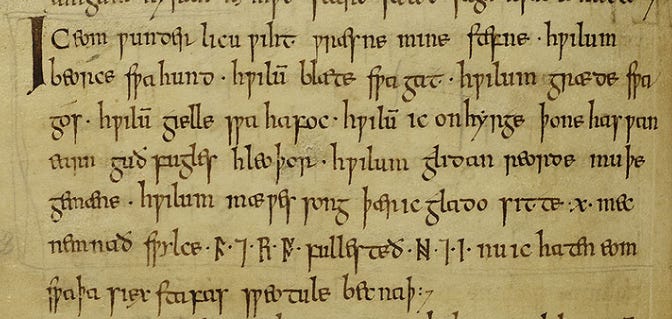 Ic eom ƿunder licu ƿiht ƿræsne mine stefne · hƿilum
beorce sƿa hund · hƿilū blæte sƿa gat · hƿilum græde sƿa
gos · hƿilū gielle sƿa hafoc · hƿilū ic onhyrge þone hasƿan
earn guð fugles hleoþor · hƿilum glidan reorde muþe
gemæne · hƿilum mæƿes song þær ic glado sitte ·x· mec
nemnað sƿylce ·ᚫ·⁊·ᚱ·ᚩ· fullesteð ·ᚻ·ᛁ·ᛁ· nu ic haten eom
sƿa þa siex stafas sƿeotule becnaþ :⁊